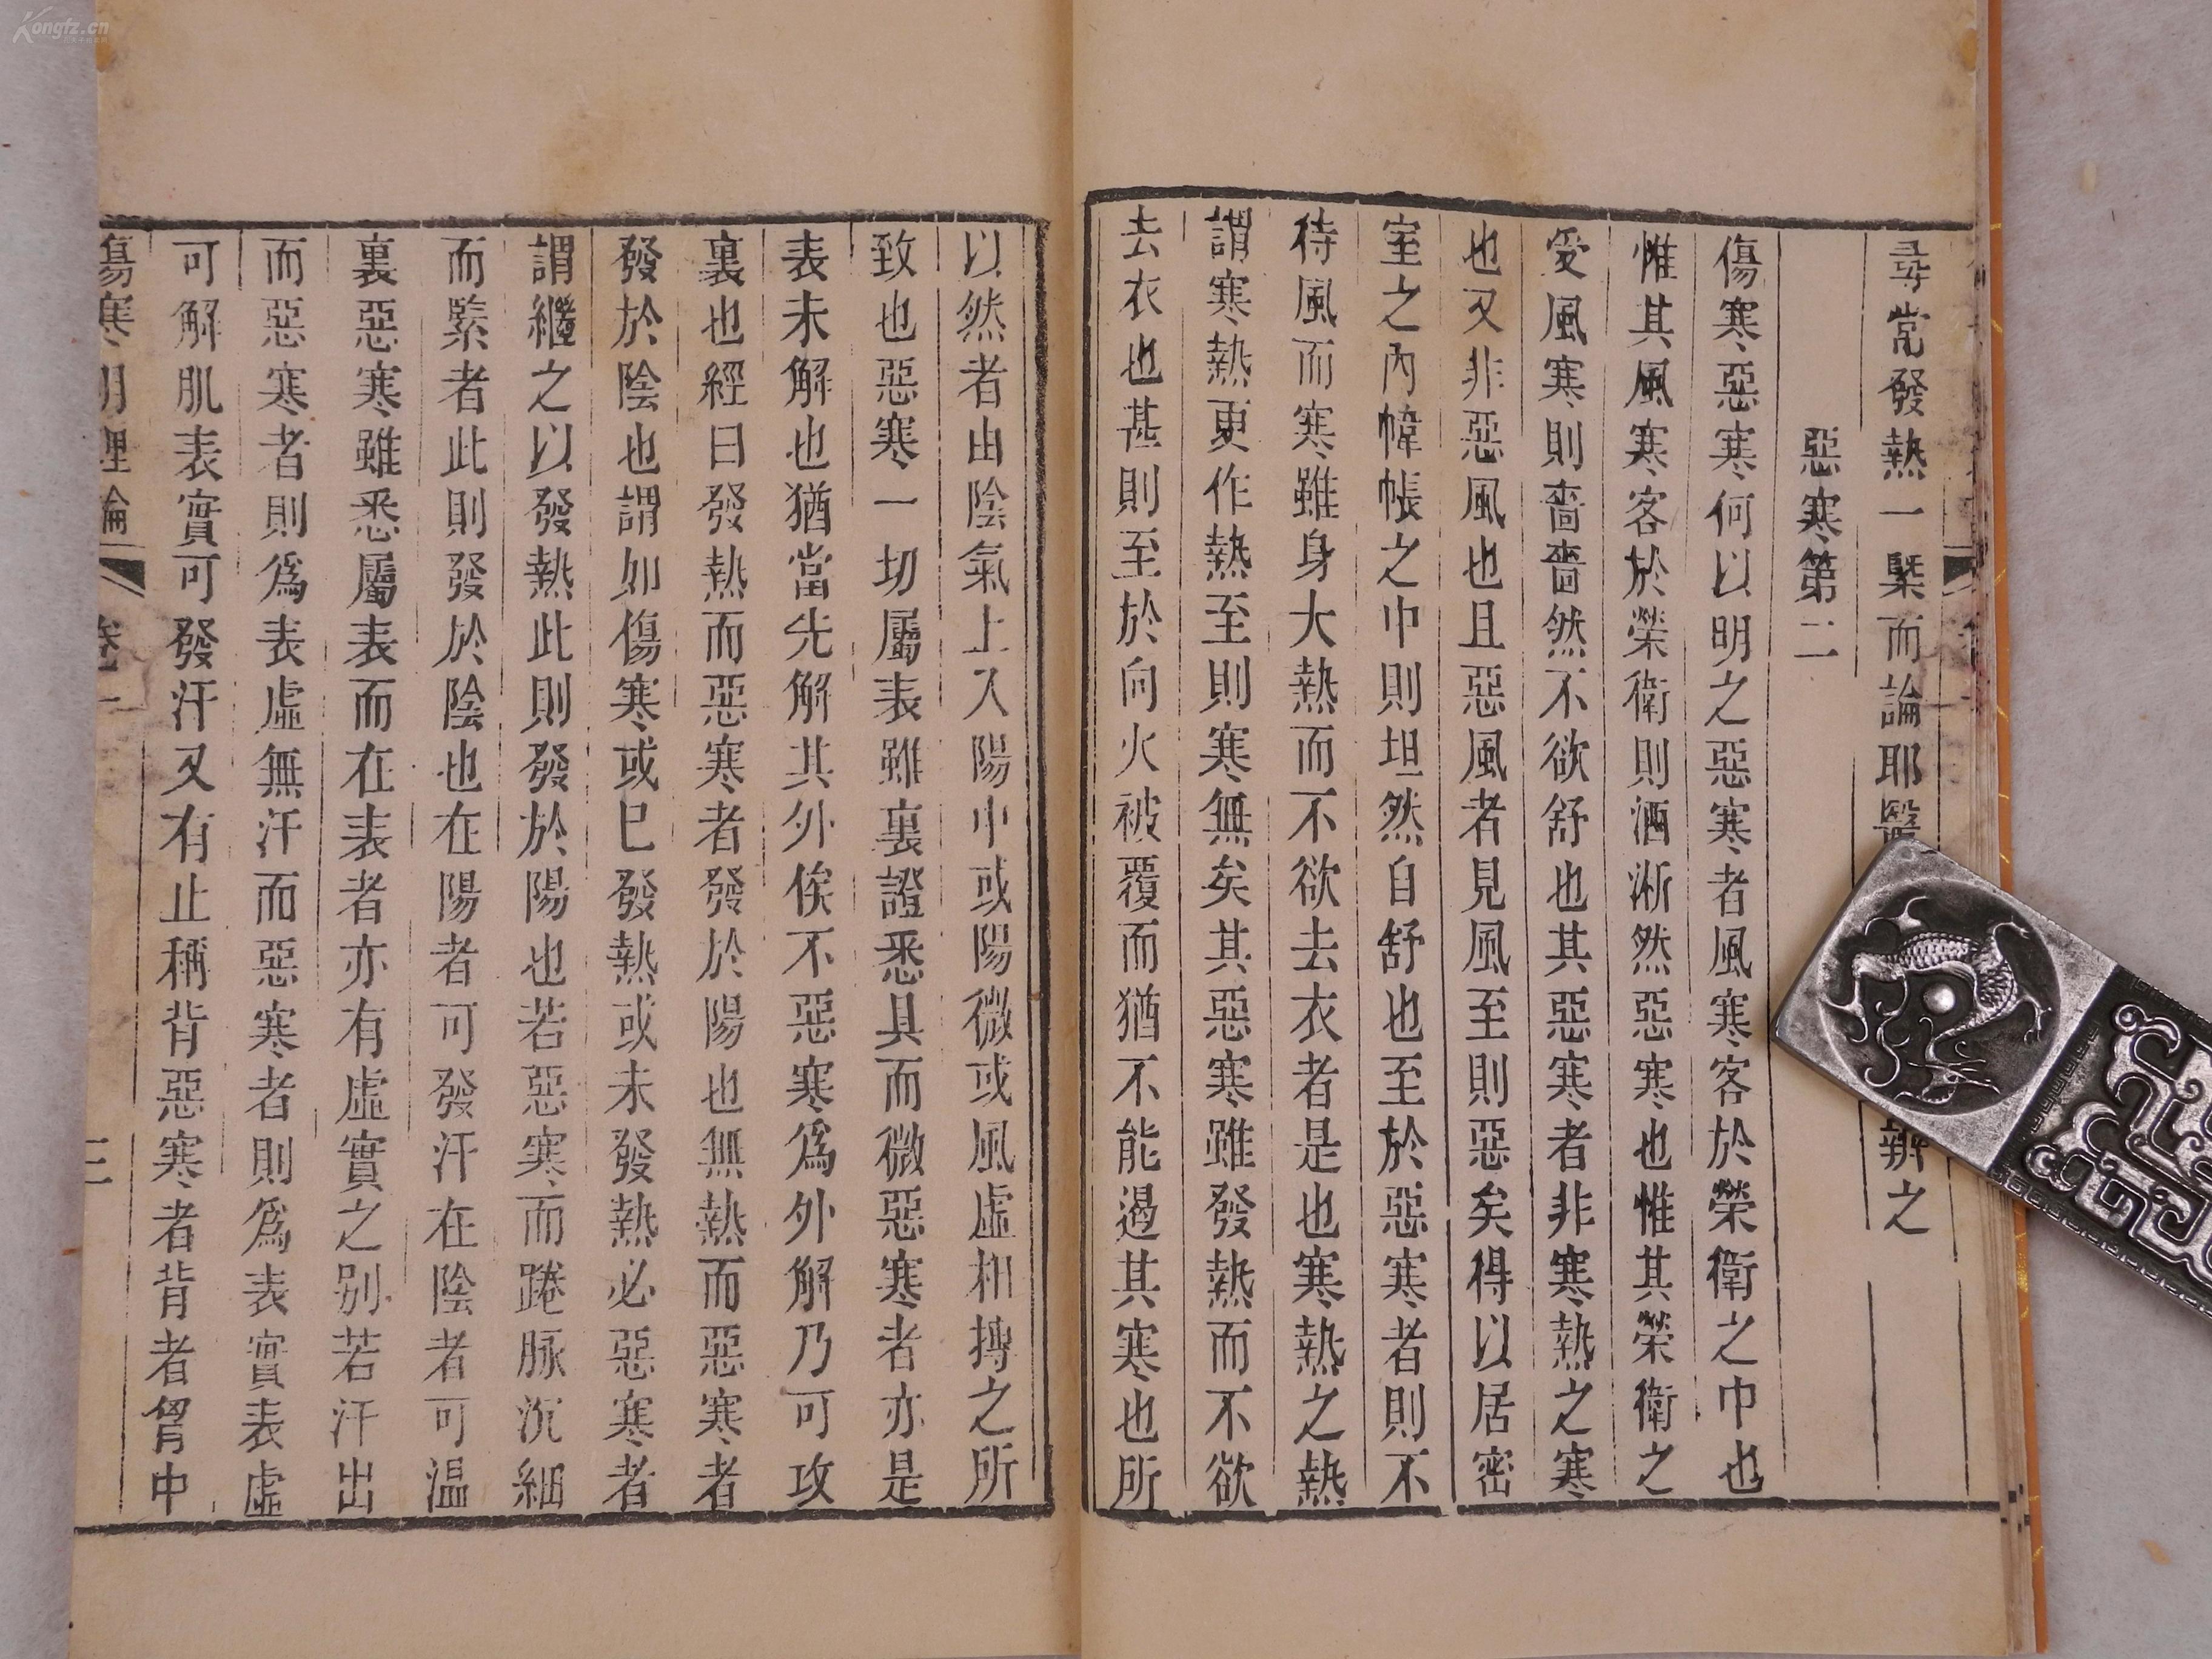 尋常發熱一槩而論耶醫
辨之
惡寒第二
傷寒惡寒何以明之惡寒者風寒客於榮衛之中也
惟其風寒客於榮衛則洒淅然惡寒也惟其榮衛之
受風寒則嗇嗇然不欲舒也其惡寒者非寒熱之寒
也又非惡風也且惡風者見風至則惡矣得以居密
室之內幃帳之中則坦然自舒也至於惡寒者則不
待風而寒雖身大熱而不欲去衣者是也寒熱之熱
謂寒熱更作熱至則寒無矣其惡寒雖發熱而不欲
去衣也甚則至於向火被覆而猶不能遏其寒也所
以然者由陰氣上入陽中或陽微或風虛相搏之所
致也惡寒一切屬表雖裏證悉具而微惡寒者亦是
表未解也猶當先解其外俟不惡寒為外解乃可攻
裏也經曰發熱而惡寒者發於陽也無熱而惡寒者
發於陰也謂如傷寒或已發熱或未發熱必惡寒者
謂繼之以發熱此則發於陽也若惡寒而踡脉沉細
而緊者此則發於陰也在陽者可發汗在陰者可温
裏惡寒雖悉屬表而在表者亦有虛實之別若汗出
而惡寒者則為表虛無汗而惡寒者則為表實表虛
可解肌表實可發汗又有止稱背惡寒者背者胷中
傷寒明理論 卷一 三
Kongfz.cn